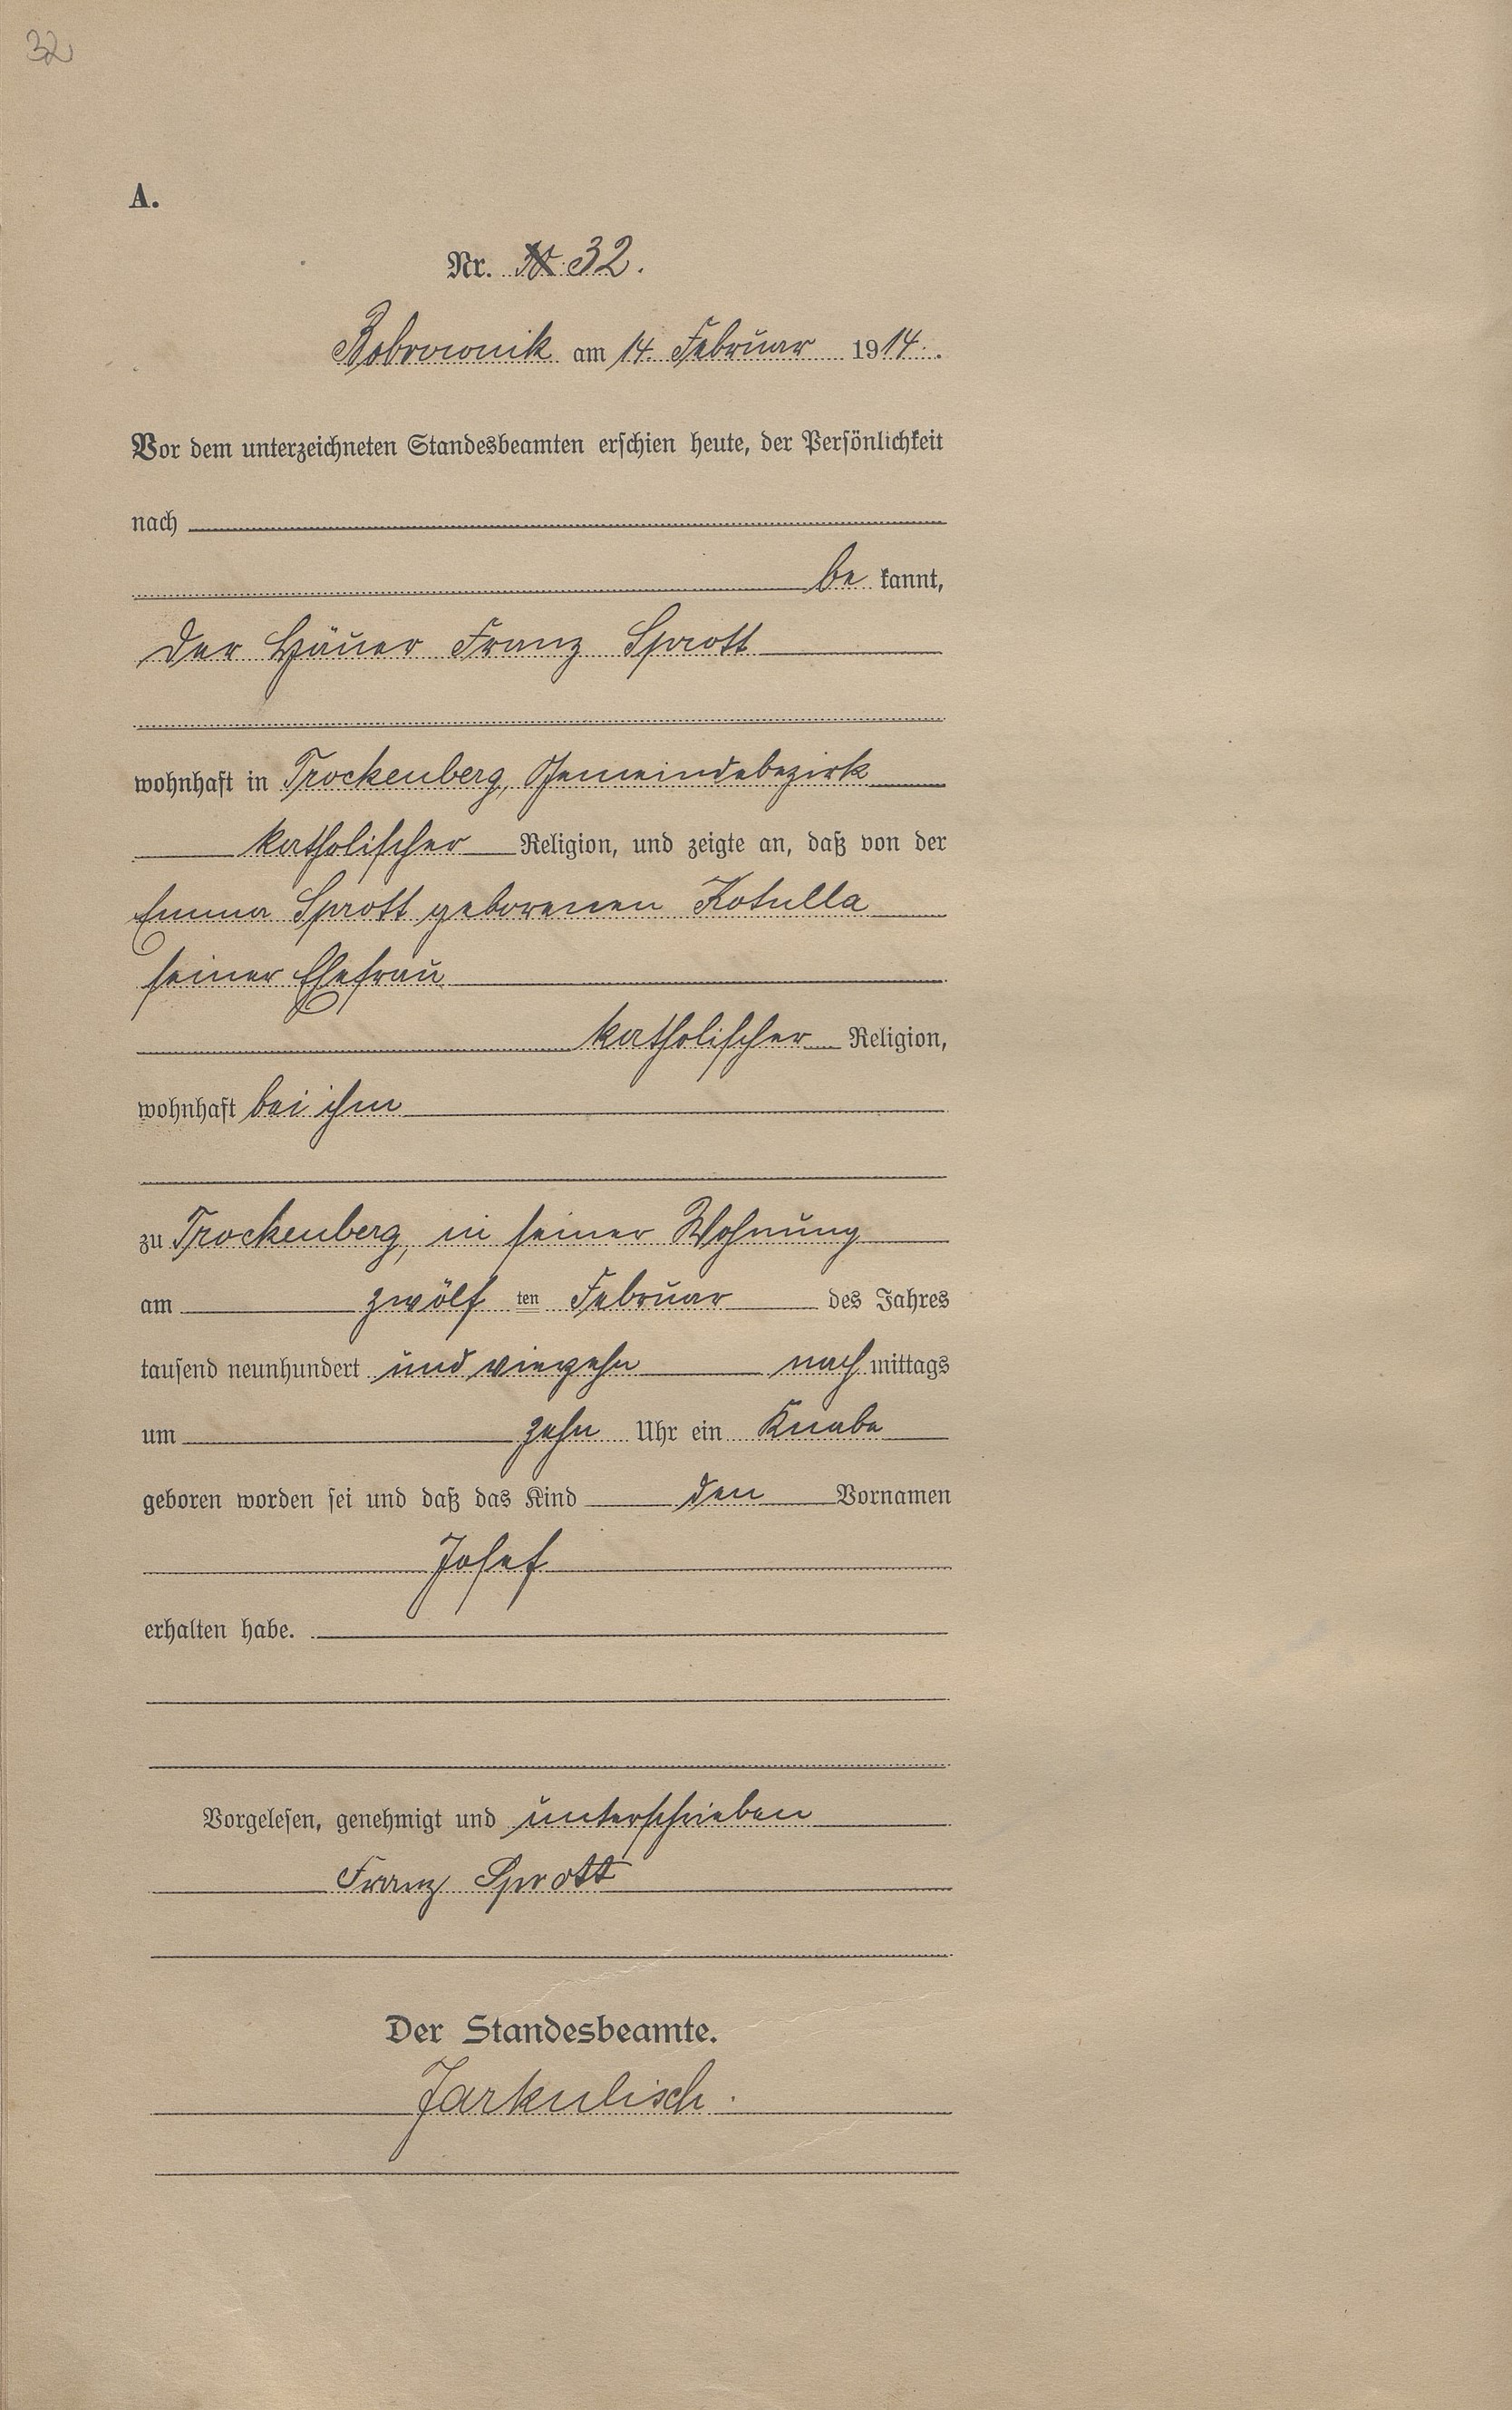 32
A.
Nr. 32.
Bobrownik am 14. Februar 1914.
Vor dem unterzeichneten Standesbeamten erschien heute, der Persönlichkeit
nach
be kannt,
der Häuer Franz Sprott
wohnhaft in Trockenberg, Gemeindebezirk
katholischer Religion, und zeigte an, daß von der
Emma Sprott geborenen Kotulla
seiner Ehefrau
katholischer Religion,
wohnhaft bei ihm
zu Trockenberg, in seiner Wohnung
am zwölf ten Februar des Jahres
tausend neunhundert und vierzehn nach mittags
um zehn Uhr ein Knabe
geboren worden sei und daß das Kind den Vornamen
Josef
erhalten habe.
Vorgelesen, genehmigt und unterschrieben
Franz Sprott
Der Standesbeamte.
Jarkulisch.